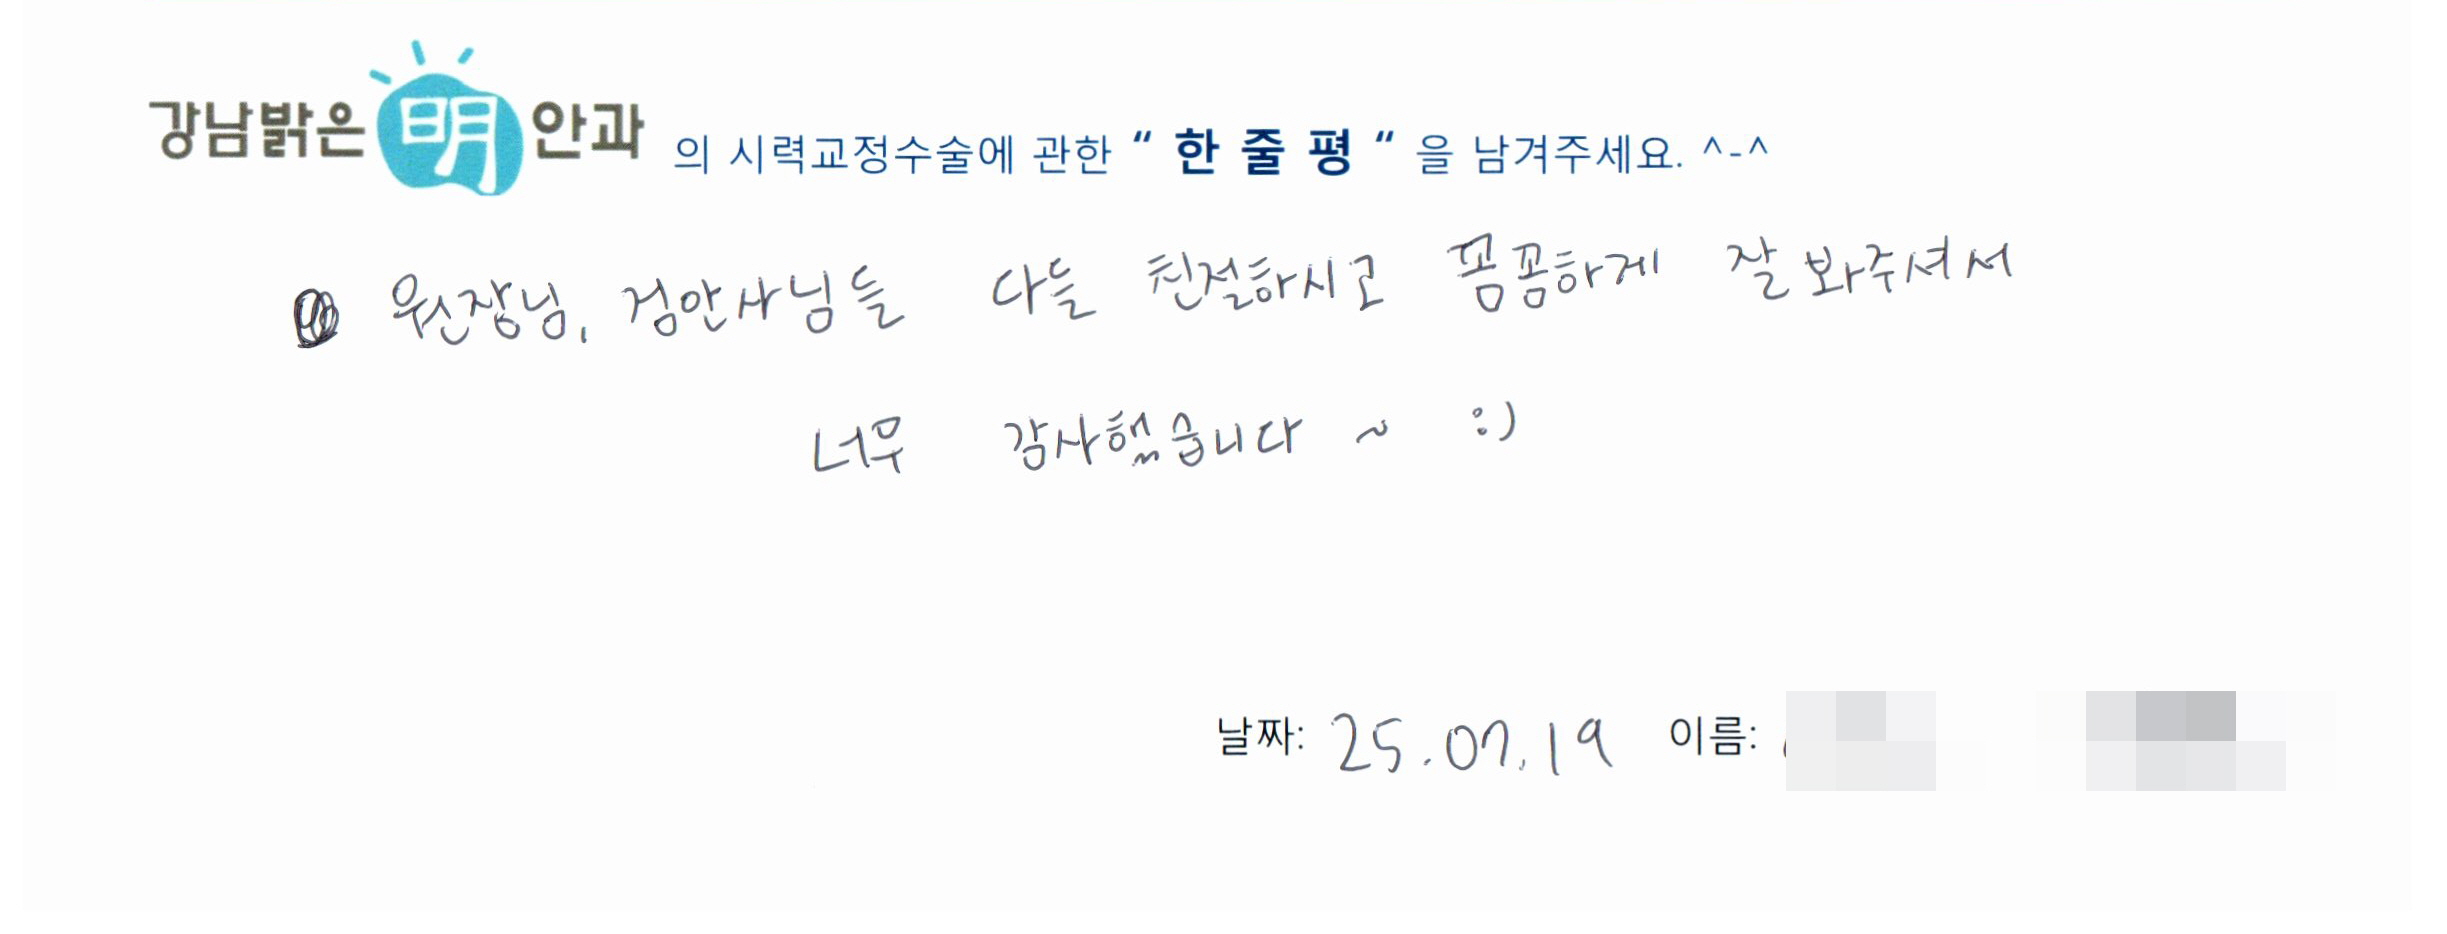 강남밝은 明 안과 의 시력교정수술에 관한 “ 한 줄 평 “ 을 남겨주세요. ^-^
원장님, 검안사님들 다들 친절하시고 꼼꼼하게 잘 봐주셔서
너무 감사했습니다 ~ :)
날짜: 25.07.19 이름: